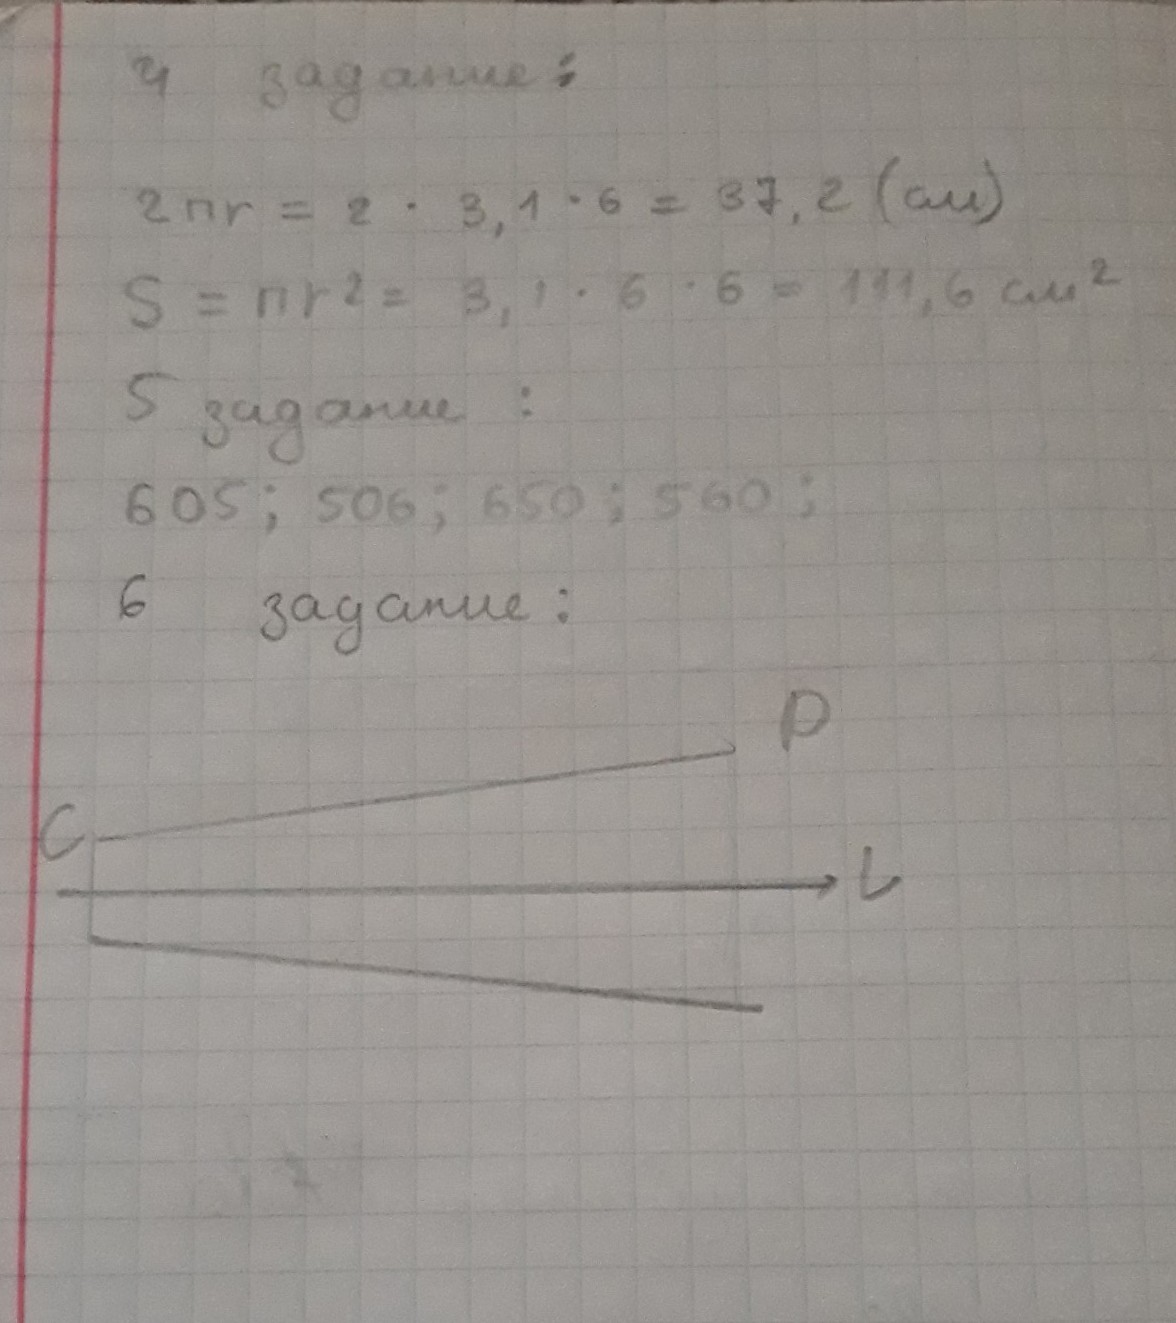 4 задание:
2пr = 2 · 3,1 · 6 = 37,2 (см)
S = пr² = 3,1 · 6 · 6 = 111,6 см²
5 задание :
605; 506; 650; 560;
6 задание:
D
C
L